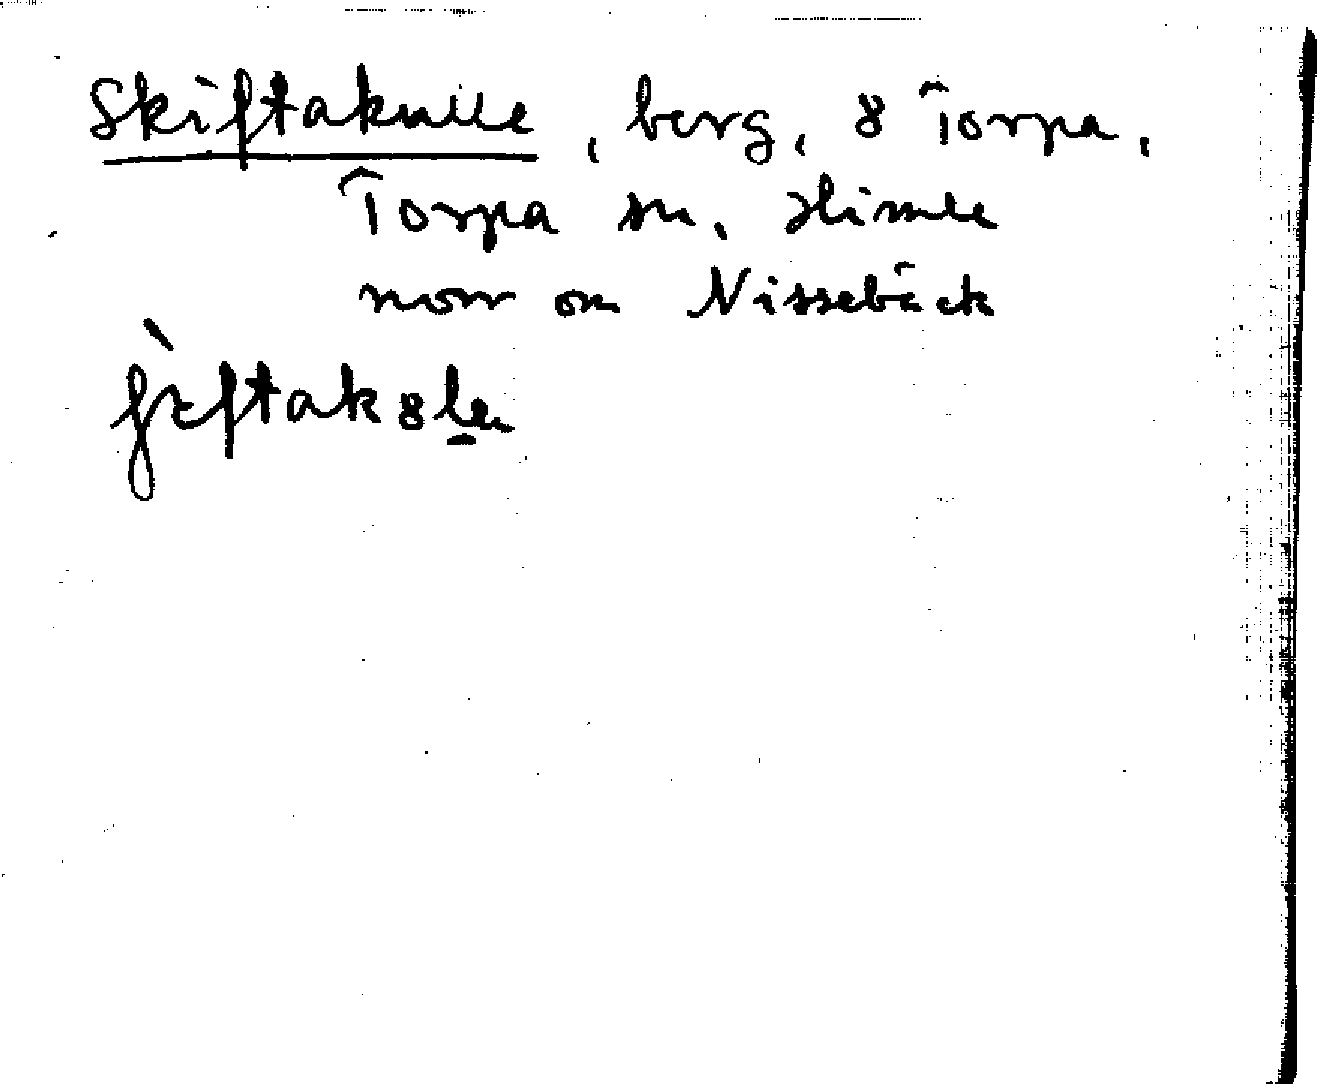 Skiftakulle, berg, 8 Torpa,
Torpa sn, Himle
norr om Nissebäck